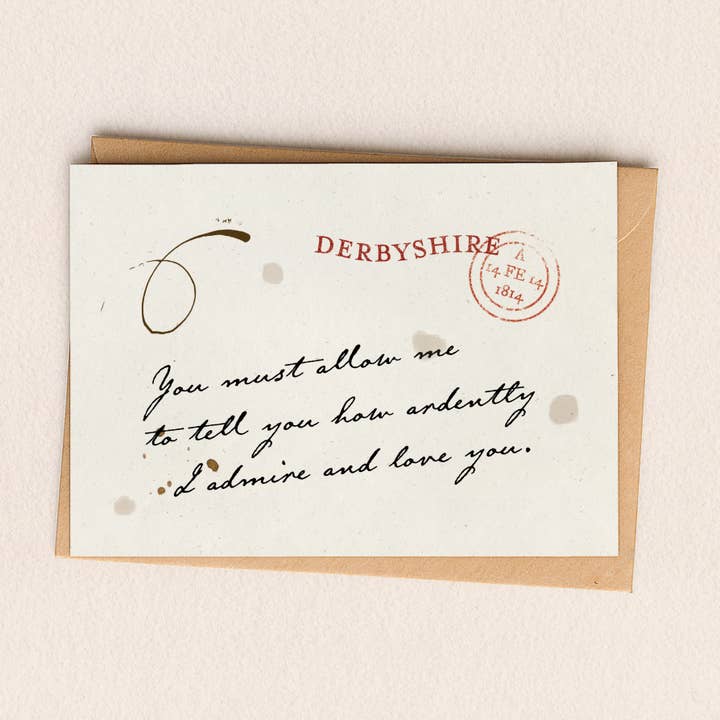 DERBYSHIRE
A
14 FE 14
1814
You must allow me
to tell you how ardently
I admire and love you.